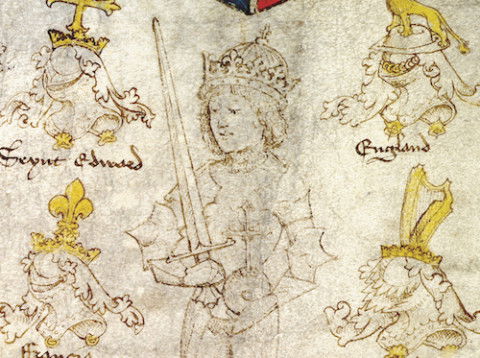 Seynt Edward
England
Fraunce